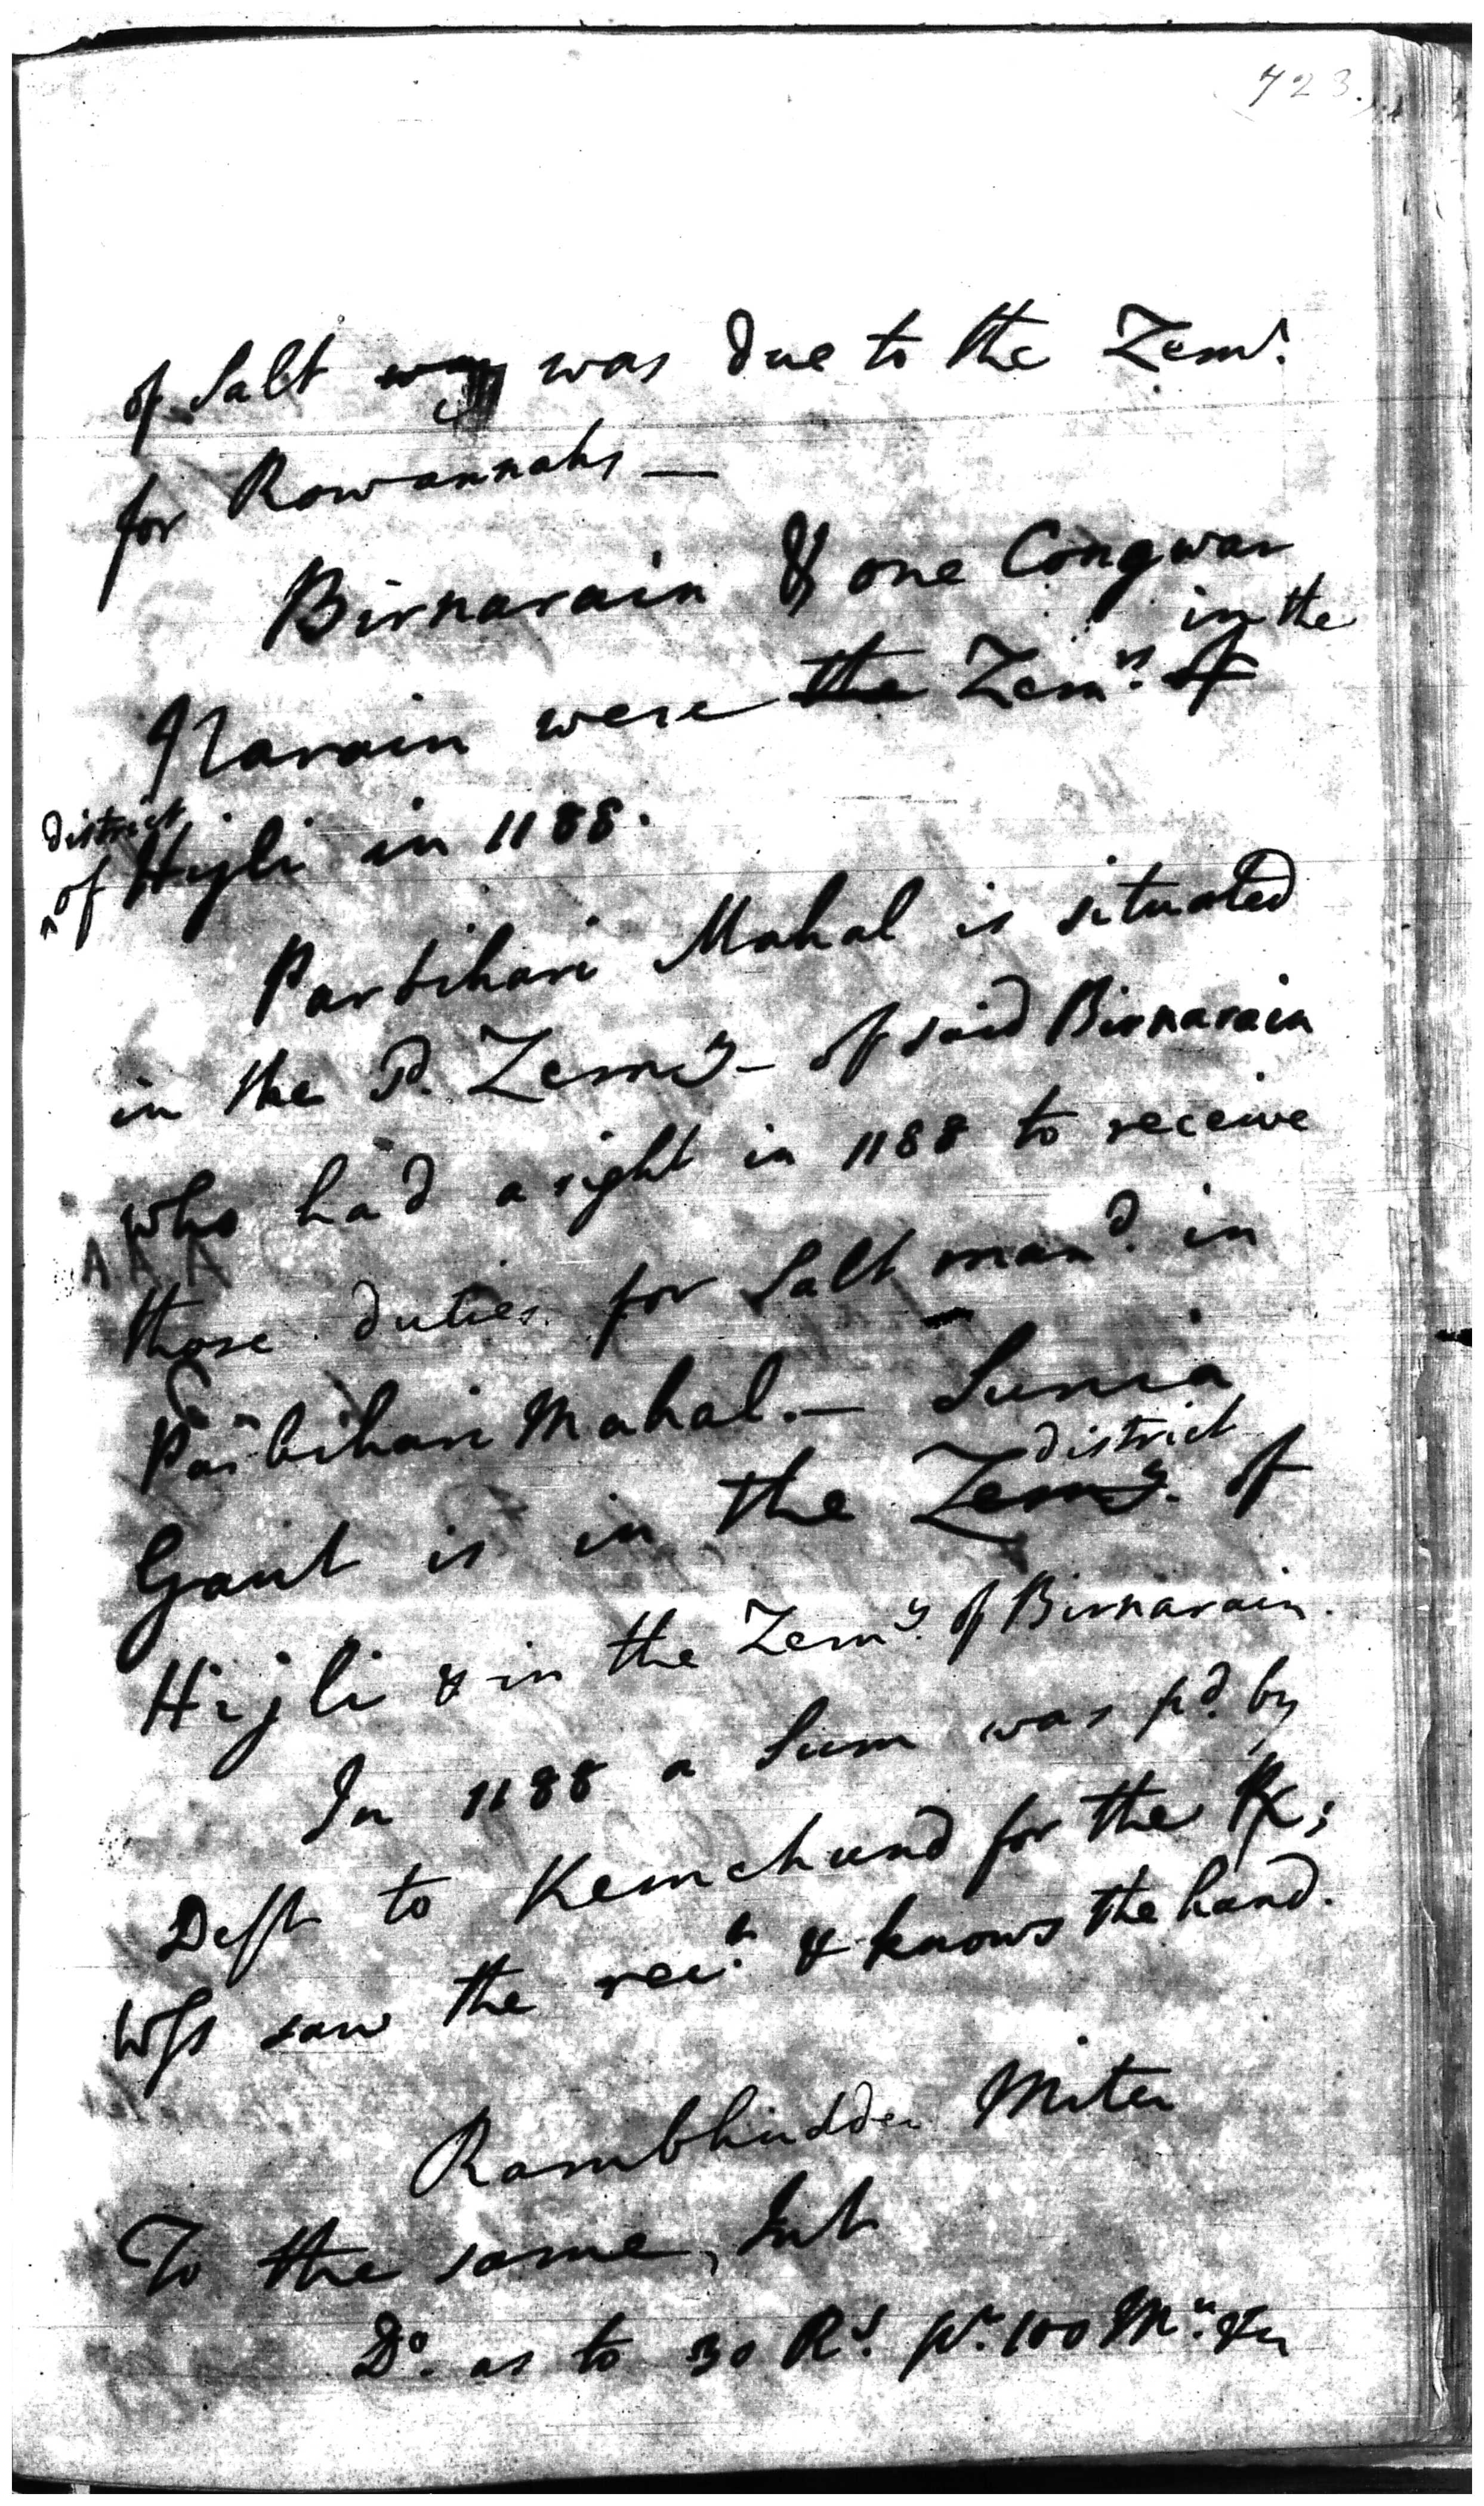 723.
of Salt was due to the Zemr.
for Rowannahs —
Birnarain & one Congwar
in the
Narain were the Zemrs. of
district
of Hijli in 1188.
Parbihari Mahal is situated
in the P. Zemy — of said Birnarain
who had a right in 1188 to receive
A A A
those duties for Salt mand. in
Parbihari Mahal. — Sunia
district
Gaut is in the Zemy. of
Hijli & in the Zemy. of Birnarain.
In 1188 a Sum was pd. by
Deft to Kemchund for the
Wss saw the rect. & knows the hand.
Rambhudder Miter
To the same, Int
Do. as to 30 Rs. pr. 100 Mn.